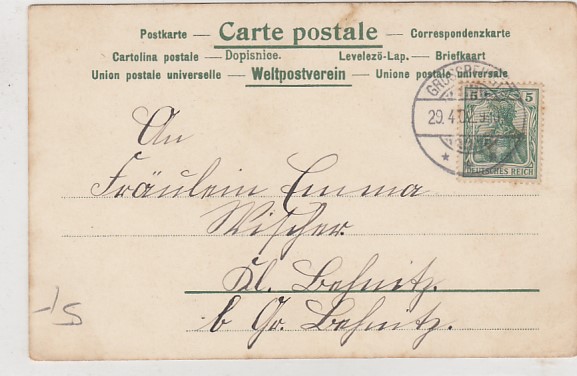 Postkarte — Carte postale — Correspondenzkarte
Cartolina postale — Dopisnice. Levelezö-Lap. — Briefkaart
Union postale universelle — Weltpostverein — Unione postale universale
29.4.02
5 5
DEUTSCHES REICH
An
Fräulein Emma
Wischer.
Kl. Behnitz.
b Gr. Behnitz.